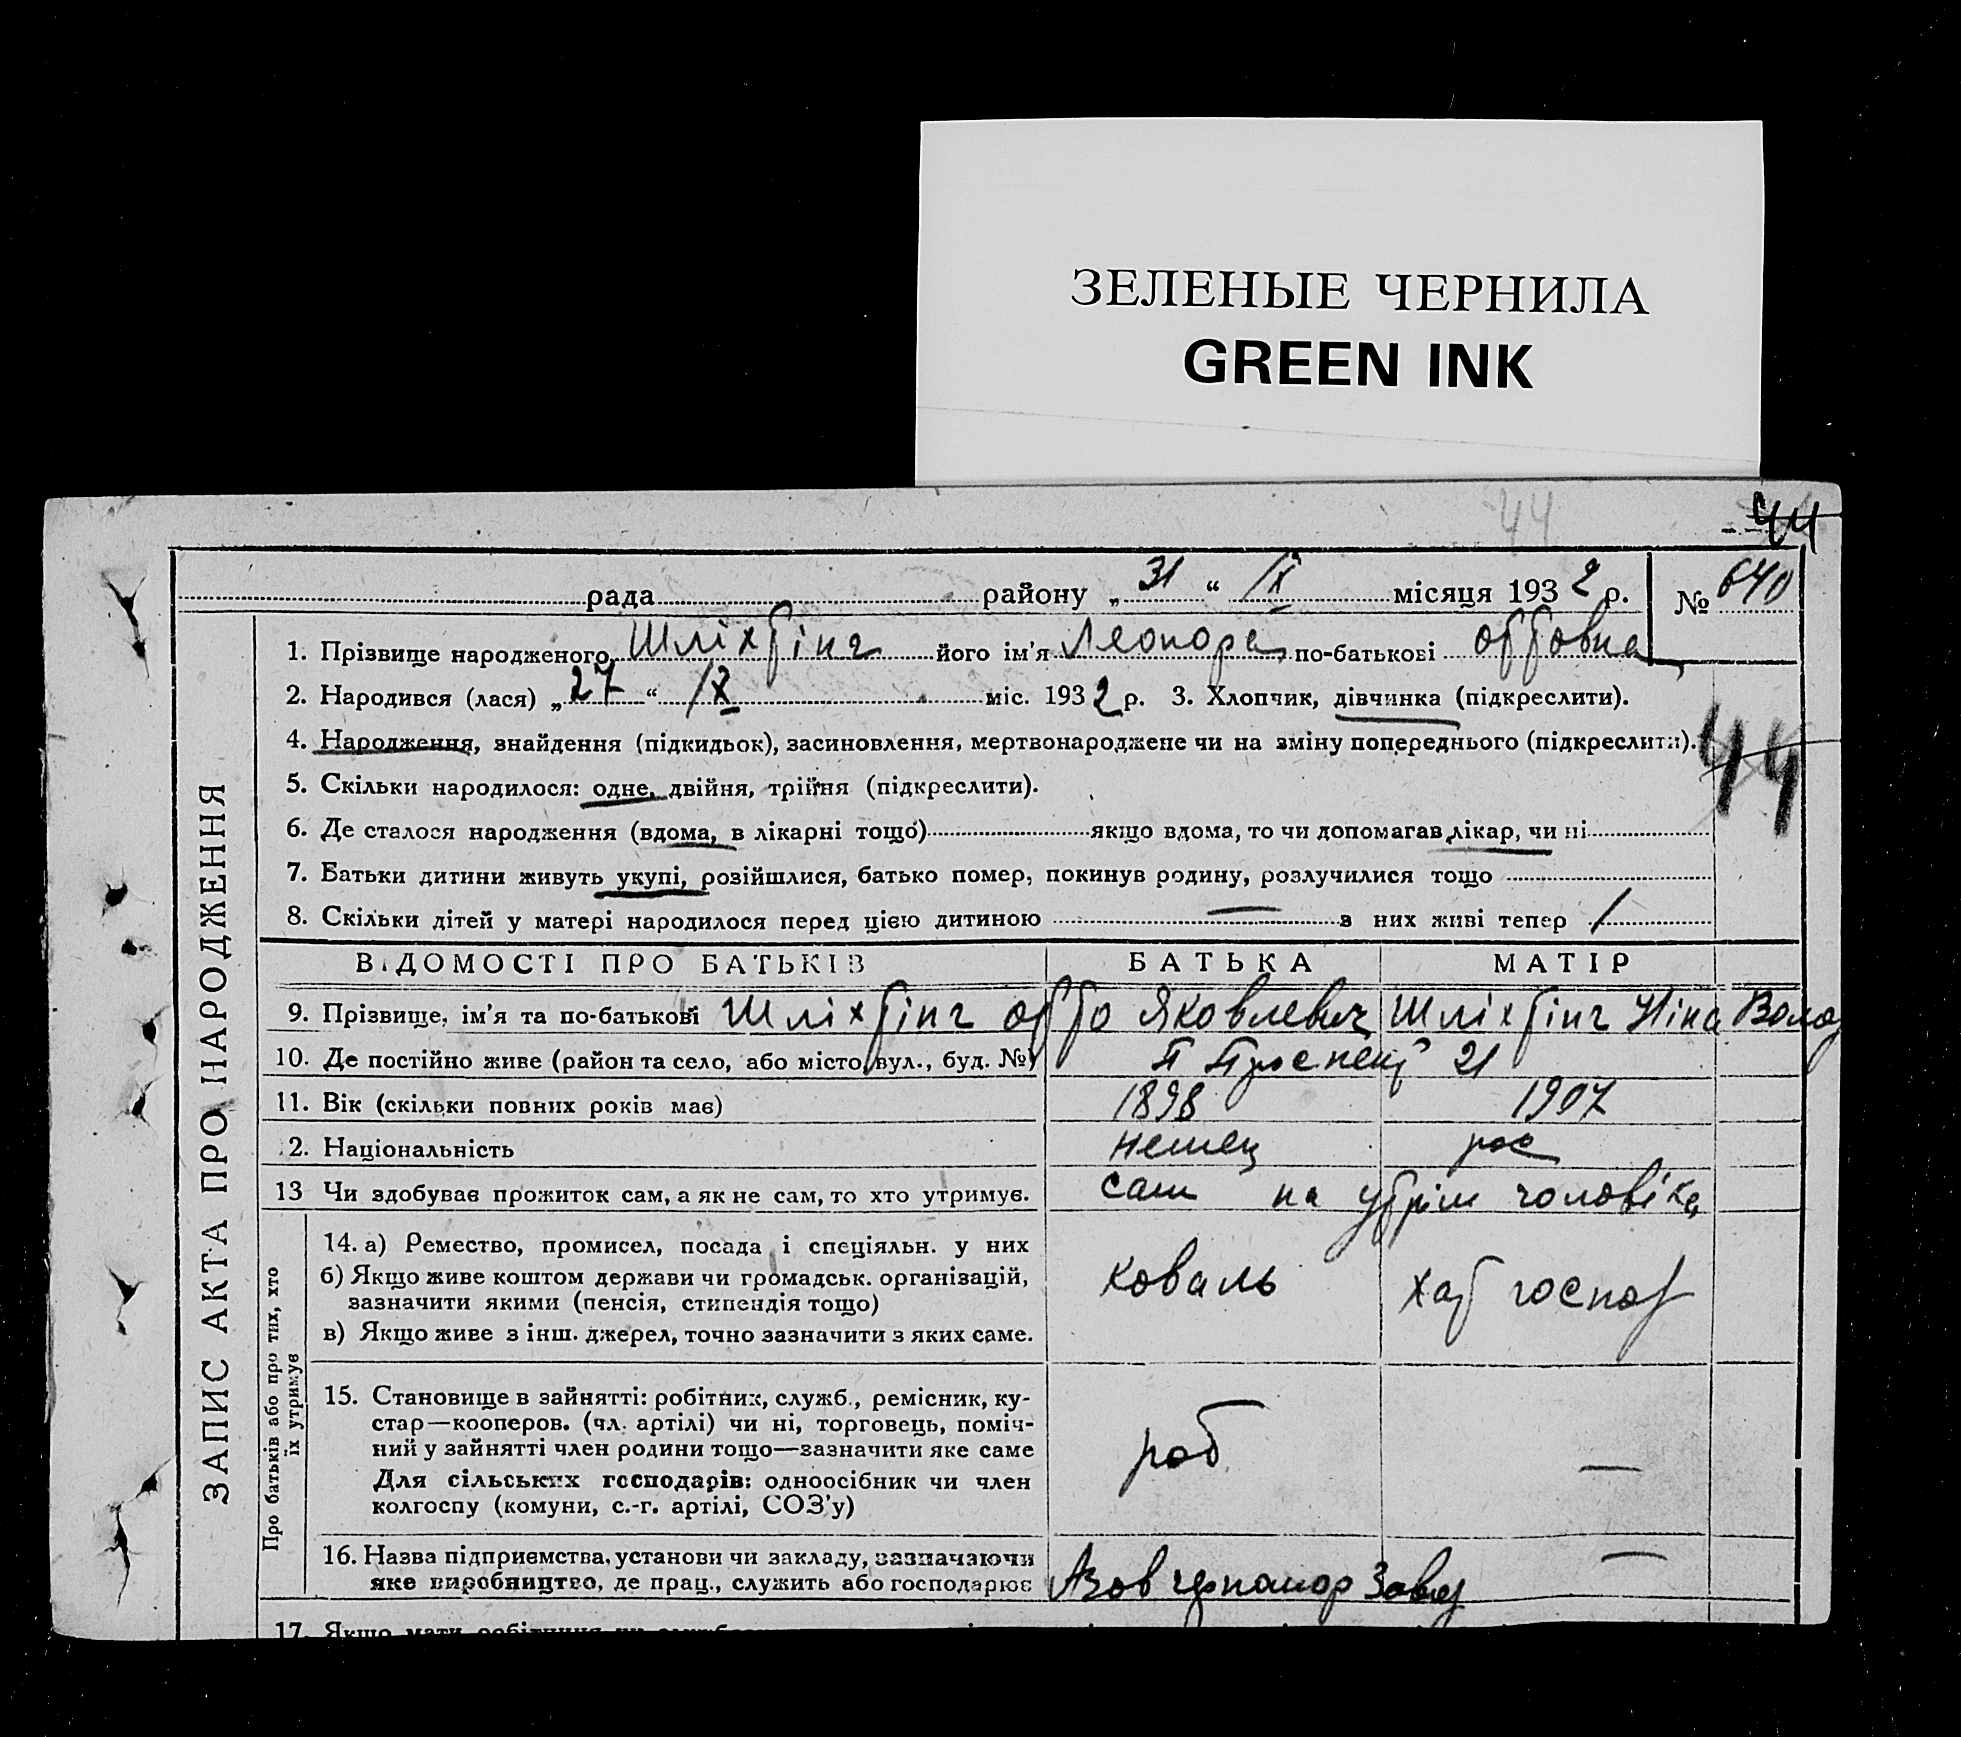 ЗЕЛЕНЫЕ ЧЕРНИЛА
GREEN INK
44
44
рада района „31“ IX місяця 1932 р. № 640
1. Прізвище народженого Шліхтінг його ім'я Леонора по-батькові Оттовна
2. Народився (лася) „27“ IX міс. 1932 р. 3. Хлопчик, дівчинка (підкреслити).
4. Народження, знайдення (підкидьок), засиновлення, мертвонароджене чи на зміну попереднього (підкреслити).
44
5. Скільки народилося: одне, двійня, трійня (підкреслити).
6. Де сталося народження (вдома, в лікарні тощо) якщо вдома, то чи допомагав лікар, чи ні
7. Батьки дитини живуть укупі, розійшлися, батько помер, покинув родину, розлучилися тощо
8. Скільки дітей у матері народилося перед цією дитиною — з них живі тепер /
ЗАПИС АКТА ПРО НАРОДЖЕННЯ
ВІДОМОСТІ ПРО БАТЬКІВ БАТЬКА МАТІР
9. Прізвище, ім'я та по-батькові Шліхтінг Отто Яковлевич Шліхтінг Ніна Волод
10. Де постійно живе (район та село, або місто, вул., буд. №) П Проспект 21
11. Вік (скільки повних років має) 1898 1907
12. Національність немец рос
13 Чи здобуває прожиток сам, а як не сам, то хто утримує. сам на утрім чоловіка
Про батьків або про тих, хто їх утримує
14. а) Ремество, промисел, посада і спеціяльн. у них
б) Якщо живе коштом держави чи громадськ. організацій,
зазначити якими (пенсія, стипендія тощо)
в) Якщо живе з інш. джерел, точно зазначити з яких саме.
коваль хат господ
15. Становище в зайнятті: робітник, служб., ремісник, ку-
стар—кооперов. (чл. артілі) чи ні, торговець, поміч-
ний у зайнятті член родини тощо—зазначити яке саме
Для сільських господарів: одноосібник чи член
колгоспу (комуни, с.-г. артілі, СОЗ'у)
роб —
16. Назва підприємства, установи чи закладу, зазначаючи —
яке виробництво, де прац., служить або господарює Азов Завод
17. Якщо мати робітниця чи